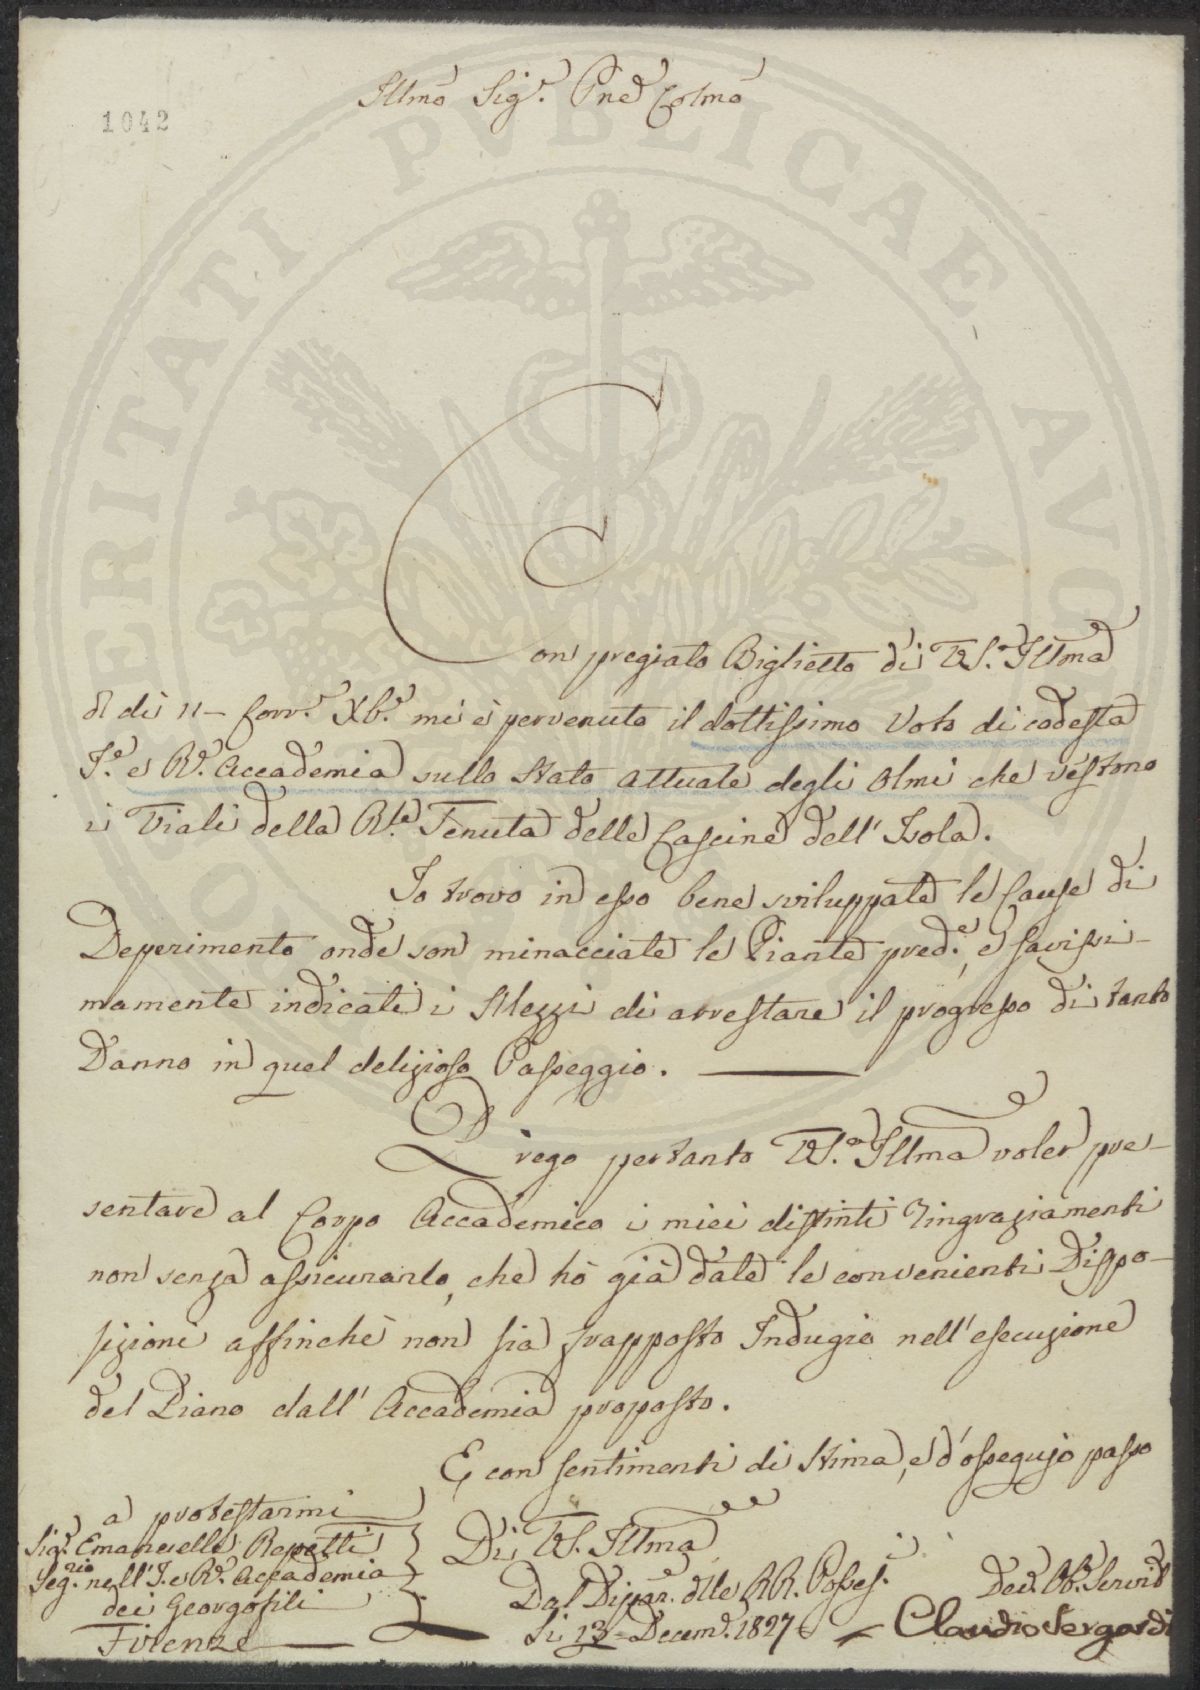 1042
Illmo Sig.r Pne Colmo
Con pregiato Biglietto di VS. Illma
di dì 11 – Corr.e Xb.e mi è pervenuto il dottissimo Voto di codesta
I.e e R.e Accademia sullo Stato attuale degli Olmi che vestono
i Viali della R.le Tenuta delle Cascine dell' Isola.
Io trovo in esso bene sviluppate le Cause di
Deperimento onde son minacciate le Piante pred.e, e savissi-
mamente indicati i Mezzi di arrestare il progresso di tanto
Danno in quel delizioso Passeggio. ———
Prego pertanto VS.a Illma voler pre-
sentare al Corpo Accademico i miei distinti ringraziamenti
non senza assicurarlo, che hò già date le convenienti Dispo-
sizioni affinchè non sia frapposto Indugio nell' esecuzione
del Piano dall' Accademia proposto.
E, con sentimenti di Stima, e d'ossequio passo
a protestarmi
Di VS. Illma
Sig.r Emanuelle Repetti
Seg.rio nell' I. e R.e Accademia
dei Georgofili
Firenze —
Dal Dipar. dlle RR. Posses.i
Li 13 = Decem.e 1827
Dev. Ob. Servid
Claudio Sergardi
PVBLICAE